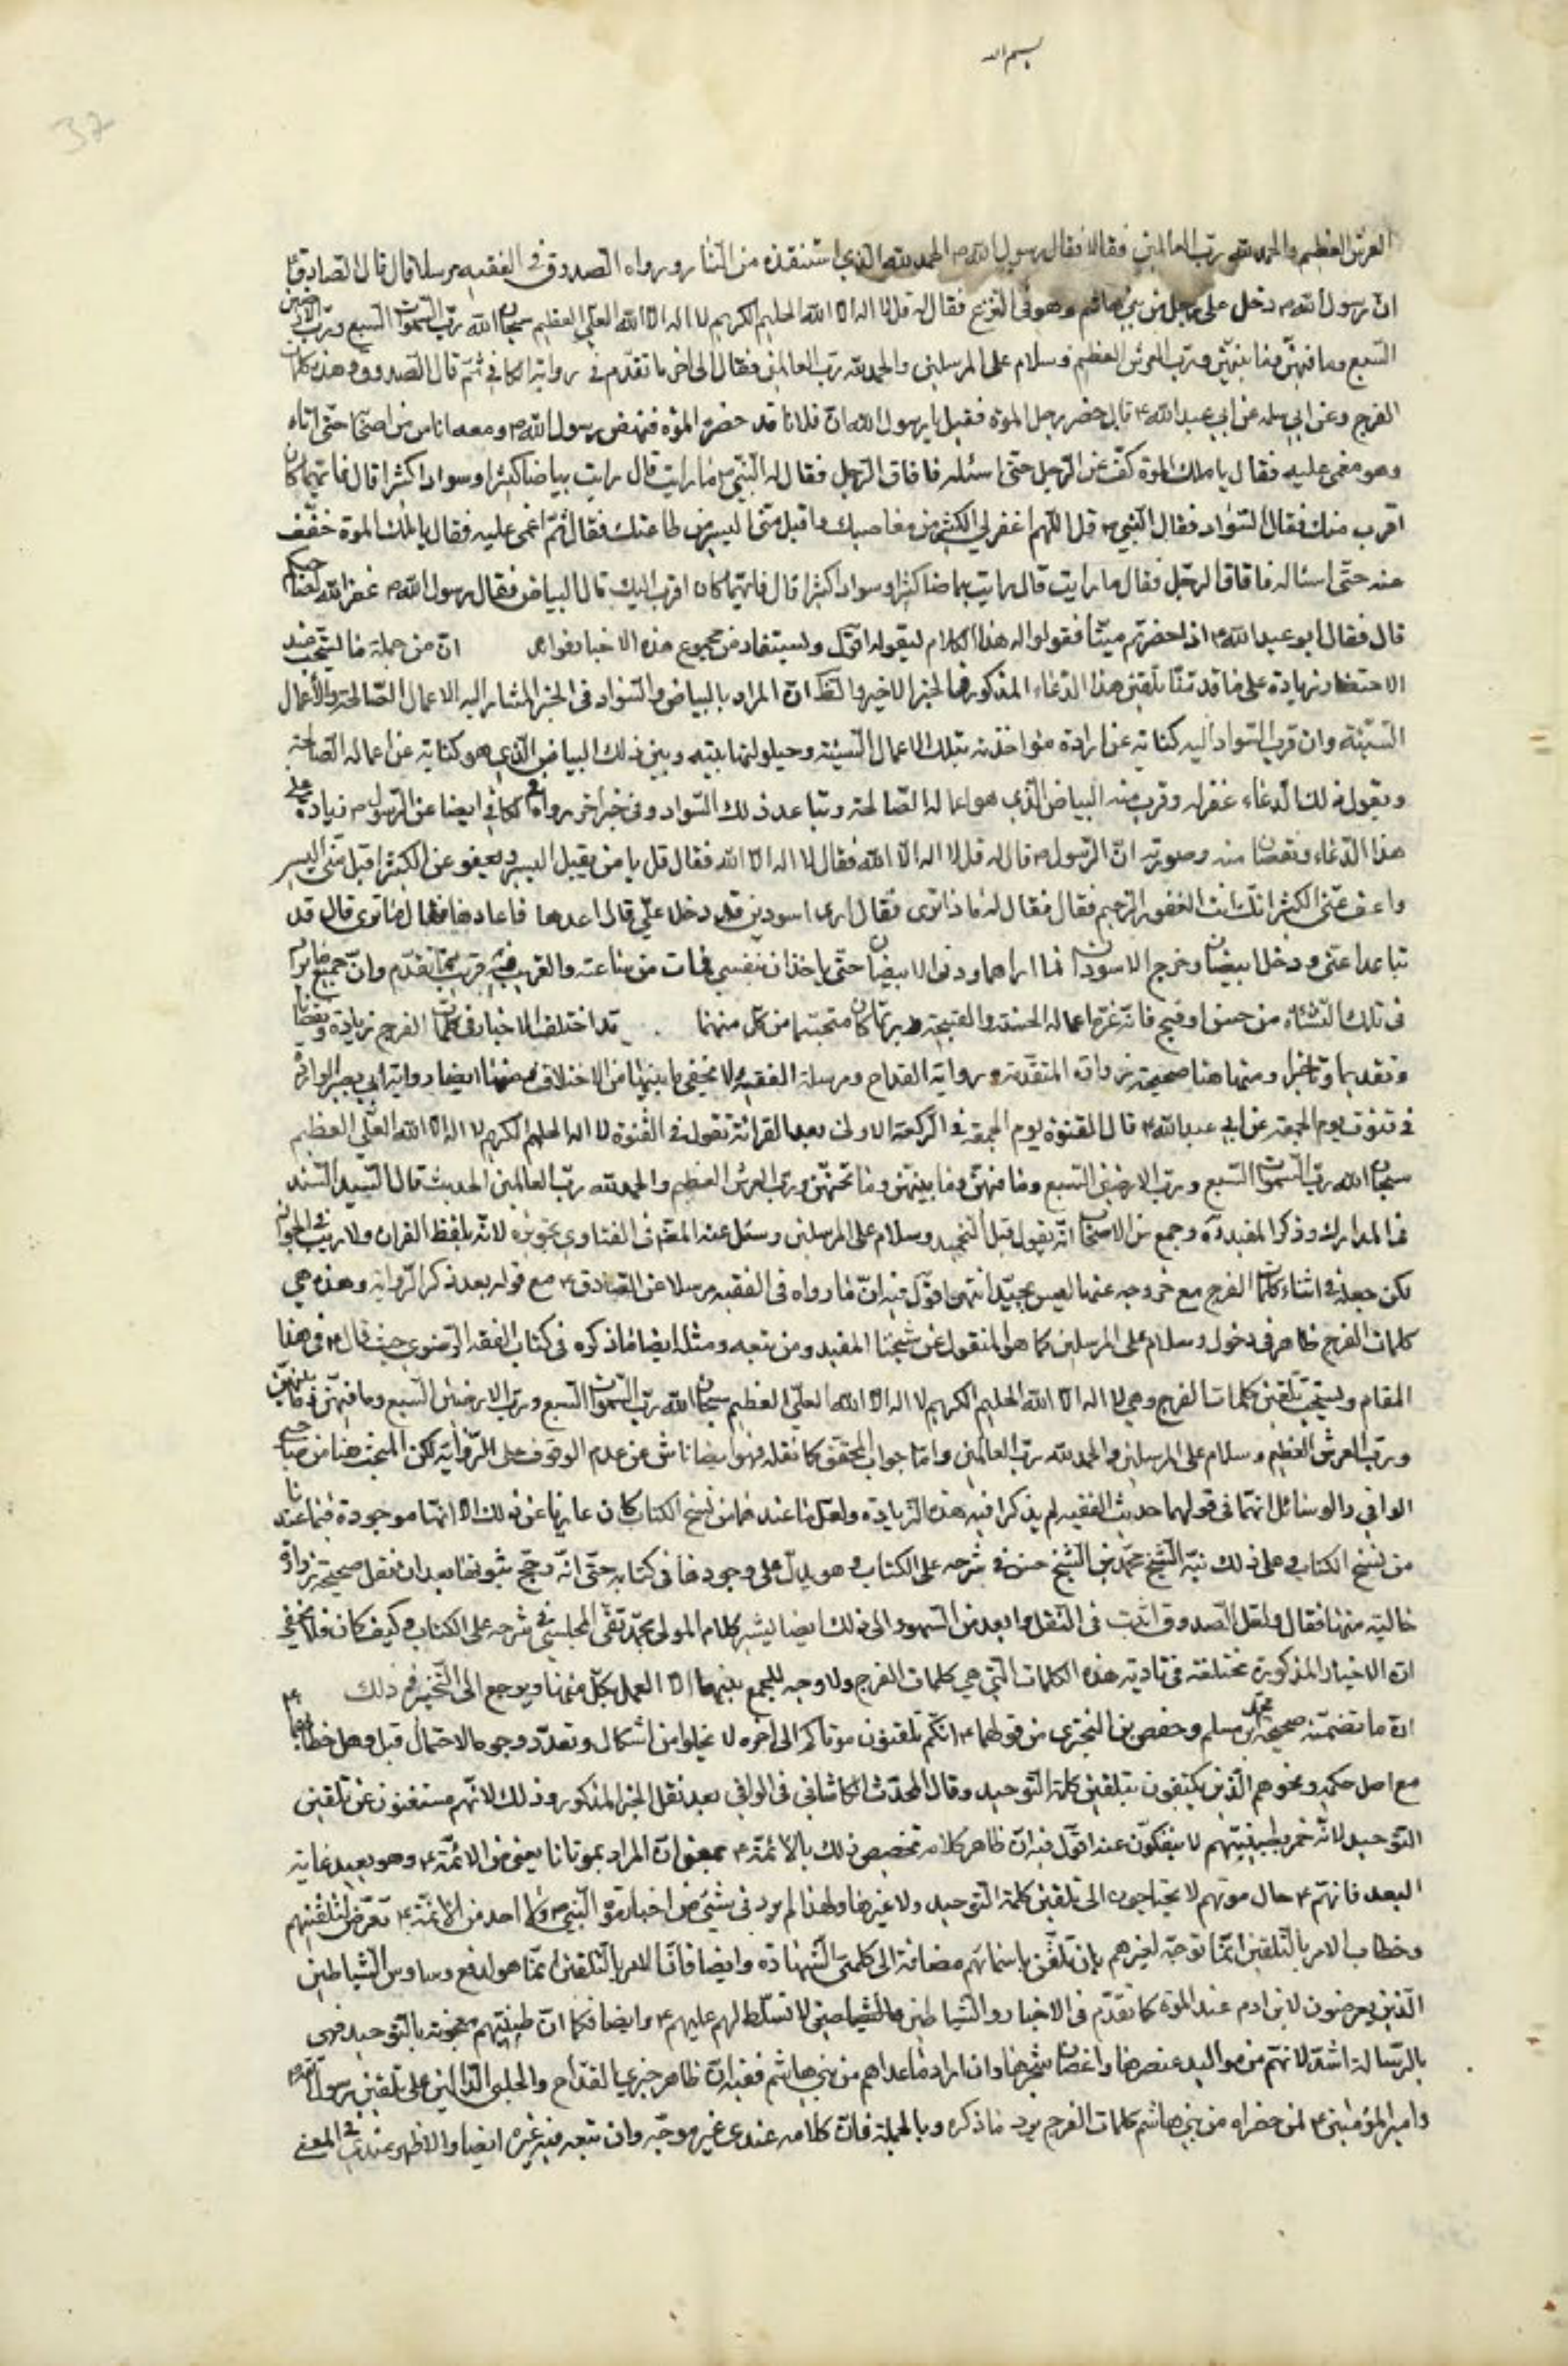 بسم الله
37
العرش العظيم والحمد لله رب العالمين فقالها فقال رسول الله ص الحمد لله الذي استنقذه من النار ورواه الصدوق في الفقيه مرسلا قال قال الصادق ع
ان رسول الله ص دخل على رجل من بني هاشم وهو في النزع فقال له قل لا اله الا الله الحليم الكريم لا اله الا الله العلي العظيم سبحان الله رب السموات السبع ورب الارضين
السبع وما فيهن وما بينهن ورب العرش العظيم وسلام على المرسلين والحمد لله رب العالمين فقال الى اخر ما تقدم في رواية الكافي ثم قال الصدوق وهذه كلمات
الفرج وعن ابي سلمه عن ابي عبد الله ع قال حضر رجل الموة فقيل يا رسول الله ان فلانا قد حضره الموة فنهض رسول الله ص ومعه اناس من اصحابه حتى اتاه
وهو مغمى عليه فقال يا ملك الموة كف عن الرجل حتى اسئله فافاق الرجل فقال له النبي ص ما رايت قال رايت بياضا كثيرا وسوادا كثيرا قال فايهما كان
اقرب منك فقال السواد فقال النبي ص قل اللهم اغفر لي الكثير من معاصيك واقبل مني اليسير من طاعتك فقال ثم اغمى عليه فقال يا ملك الموة خفف
عنه حتى اسئاله فافاق الرجل فقال ما رايت قال رايت بياضا كثيرا وسوادا كثيرا قال فايهما كان اقرب اليك قال البياض فقال رسول الله ص غفر الله لصاحبكم
قال فقال ابو عبد الله ع اذا حضرتم ميتا فقولوا له هذا الكلام ليقوله اقول ويستفاد من مجموع هذه الاخبار فوائد ان من جملة ما يستحب عند
الاحتضار زيادة على ما قدمنا تلقين هذا الدعاء المذكور في الخبر الاخير والظ ان المراد بالبياض والسواد في الخبر المشار اليه الاعمال الصالحة والاعمال
السيئة وان قرب السواد اليه كناية عن ارادة مؤاخذته بتلك الاعمال السيئة وحيلولتها بينه وبين ذلك البياض الذي هو كناية عن اعماله الصالحة
وبقول ذلك الدعاء غفر له وقرب منه البياض الذي هو اعماله الصالحة وتباعد ذلك السواد وفي خبر اخر رواه في الكافي ايضا عن الرسول ص زيادة على
هذا الدعاء ونقصان منه وصورته ان الرسول ص قال له قل لا اله الا الله فقال لا اله الا الله فقال قل يا من يقبل اليسير ويعفو عن الكثير اقبل مني اليسير
واعف عني الكثير انك انت الغفور الرحيم فقال فقال له ما ذا ترى فقال ارى اسودين قد دخلا علي قال اعدها فاعادها فقال ما ترى قال قد
تباعدا عني ودخل ابيضان وخرج الاسودان فما اراهما ودنى الابيضان حتى ياخذان بنفسي فمات من ساعته والتقريب فيه قريب مما تقدم وان جميع ما يراه
في تلك النشأة من حسن او قبيح فانه ثمرة اعماله الحسنة والقبيحة قد اختلف الاخبار في كلمات الفرج زيادة ونقصانا
وتقديما وتاخيرا ومنها هنا صحيحة زرارة المتقدمة ورواية القداح ومرسلة الفقيه ولا يخفى ما بينها من الاختلاف ومنها ايضا رواية ابي بصير الواردة
في قنوت يوم الجمعة عن ابي عبد الله ع قال القنوة يوم الجمعة في الركعة الاولى بعد القرائة تقول في القنوة لا اله الا الله الحليم الكريم لا اله الا الله العلي العظيم
سبحان الله رب السموات السبع ورب الارضين السبع وما فيهن وما بينهن وما تحتهن ورب العرش العظيم والحمد لله رب العالمين الحديث قال السيد السند
في المدارك وذكر المفيد ره وجمع من الاصحاب انه يقول قبل التحميد وسلام على المرسلين وسئل عنه المص في الفتاوى فجوزه لانه بلفظ القران ولا ريب في الجواز
لكن جعله في اثناء كلمات الفرج مع خروجه عنها ليس بجيد انتهى اقول فيه ان ما رواه في الفقيه مرسلا عن الصادق ع مع قوله بعد ذكر الرواية وهذه هي
كلمات الفرج ظاهر في دخول وسلام على المرسلين كما هو المنقول عن شيخنا المفيد ومن تبعه ومثله ايضا ما ذكره في كتاب الفقه الرضوي حيث قال ع في هذا
المقام ويستحب تلقين كلمات الفرج وهي لا اله الا الله الحليم الكريم لا اله الا الله العلي العظيم سبحان الله رب السموات السبع ورب الارضين السبع وما فيهن وما بينهن
ورب العرش العظيم وسلام على المرسلين والحمد لله رب العالمين واما جواب المحقق كما نقله فهو ايضا ناش عن عدم الوقوف على الرواية لكن العجب هنا من صاحبي
الوافي والوسائل انهما في قولهما حديث الفقيه لم يذكرا فيه هذه الزيادة ولعل ما عندهما من نسخ الكتاب كان عاريا عن ذلك الا انها موجودة فيما عندنا
من نسخ الكتاب وعلى ذلك نبه الشيخ محمد بن الشيخ حسن في شرحه على الكتاب وهو يدل على وجودها في كتابه حتى انه رجح ثبوتها بعد ان نقل صحيحة زرارة
خالية منها فقال ولعل الصدوق اثبت في النقل وابعد من السهو والى ذلك ايضا يشير كلام المولى محمد تقي المجلسي في شرحه على الكتاب وكيف كان فلا يخفى
ان الاخبار المذكورة مختلفة في تادية هذه الكلمات التي هي كلمات الفرج ولا وجه للجمع بينها الا العمل بكل منها ويرجع الى التخيير في ذلك
ان ما تضمنته صحيحة محمد بن مسلم وحفص بن البختري من قولهما ع انكم تلقنون موتاكم الى اخره لا يخلوا من اشكال وتعدد وجوه الاحتمال قيل وهل خطابه
مع اصل حكمه ونحوهم الذين يكتفون بتلقين كلمة التوحيد وقال المحدث الكاشاني في الوافي بعد نقل الخبر المذكور وذلك لانهم مستغنون عن تلقين
التوحيد لانه خمر بطينتهم لا ينفكون عنه اقول فيه ان ظاهر كلامه تخصيص ذلك بالائمة ع بمعنى ان المراد بموتانا يعني من الائمة ع وهو بعيد غاية
البعد فانهم ع حال موتهم لا يحتاجون الى تلقين كلمة التوحيد ولا غيرها ولهذا لم يرد في شيئ من اخبار موة النبي ص ولا احد من الائمة ع تعرض لتلقينهم
وخطاب الامر بالتلقين انما توجه لغيرهم بان تلقن باسمائهم مضافة الى كلمتي الشهادة وايضا فان الامر بالتلقين انما هو لدفع وساوس الشياطين
الذين يعرضون لابن ادم عند الموة كما تقدم في الاخبار والشياطين لا تسلط لهم عليهم ع وايضا فكما ان طينتهم معجونة بالتوحيد فهي
بالرسالة اشد لانهم من مواليد عنصرها واغصان شجرها وان اراد ما عداهم من بني هاشم ففيه ان ظاهر خبري القداح والحلبي الدالين على تلقين رسول الله ص
وامير المؤمنين ع لمن حضراه من بني هاشم كلمات الفرج يرد ما ذكره وبالجملة فان كلامه عندي غير موجه وان تبعه فيه غيره ايضا والاظهر عندي في المعنى